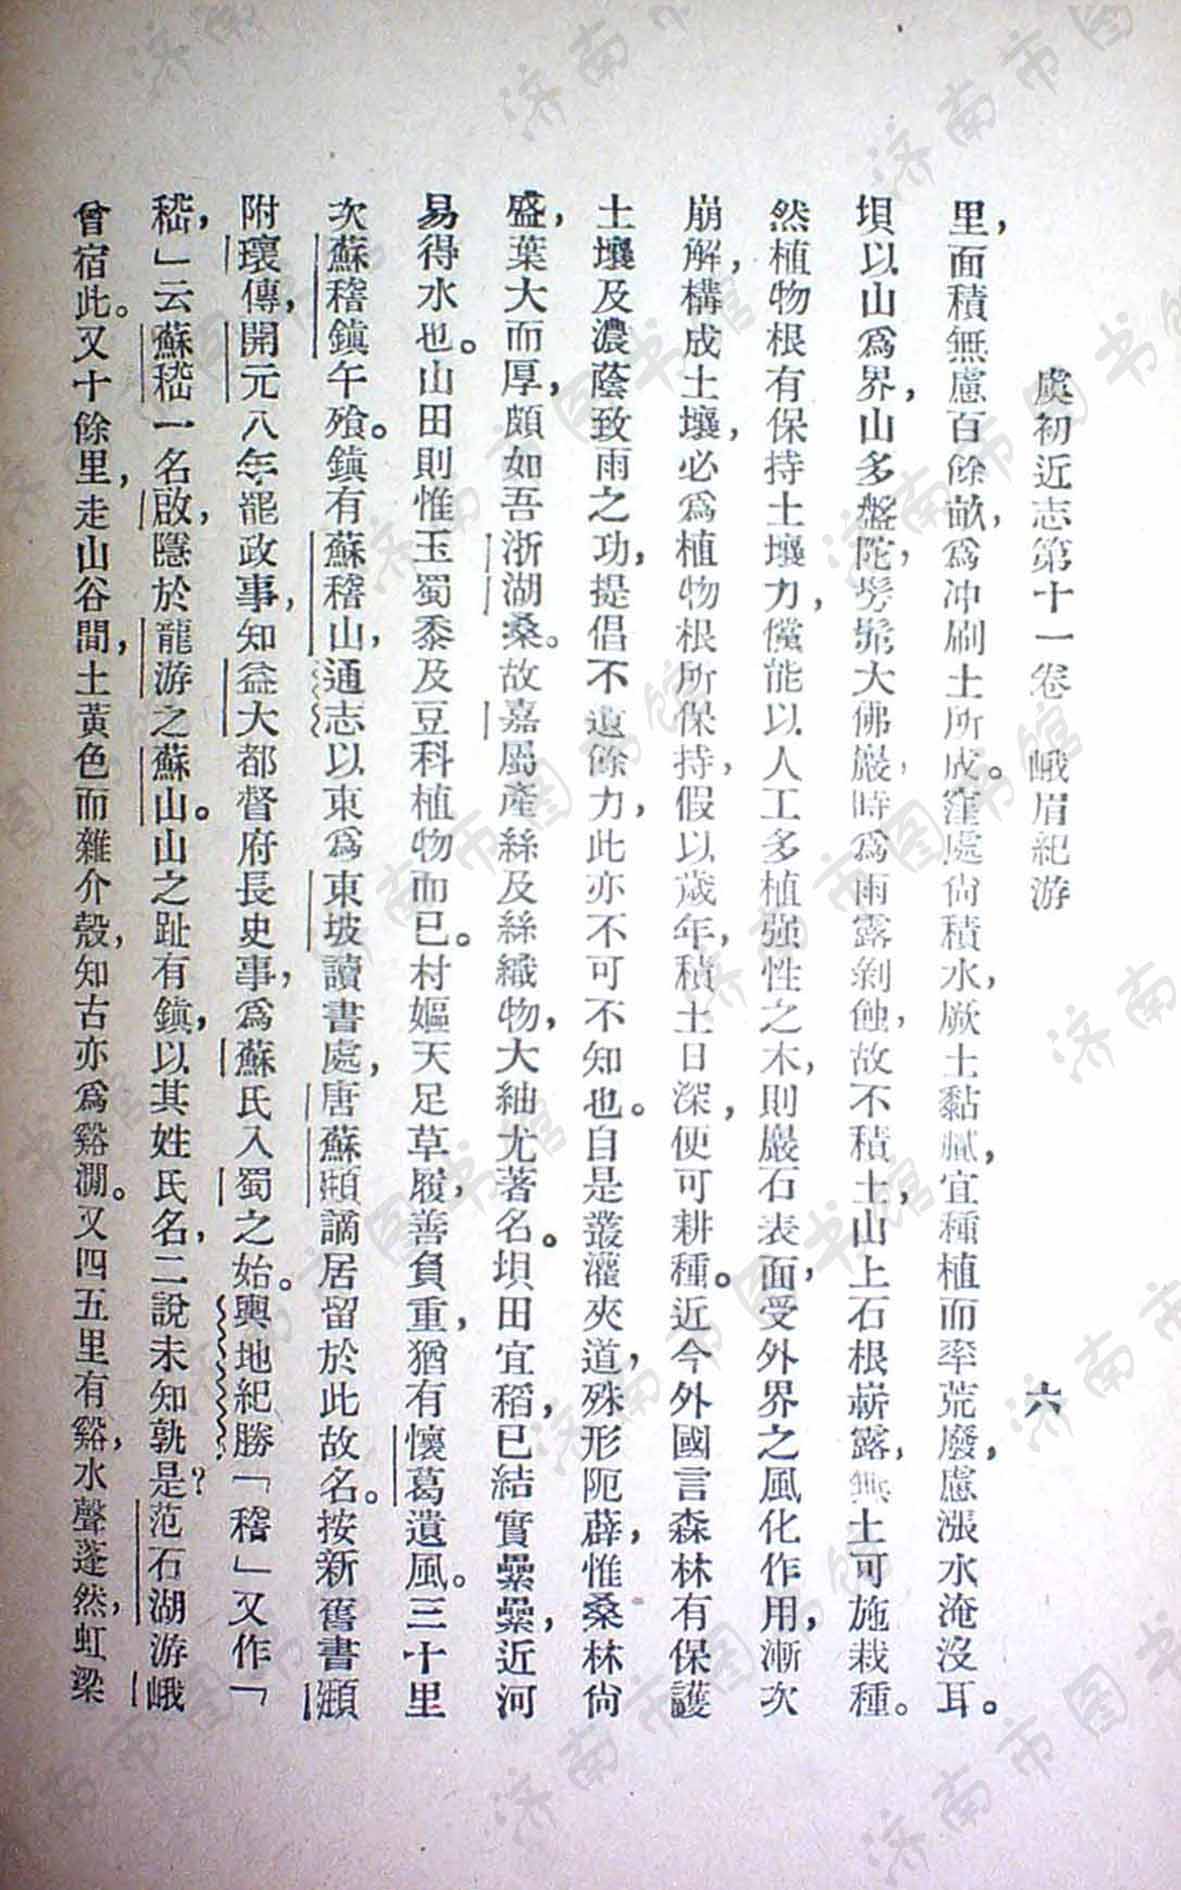 虞初近志第十一卷　峨眉紀游　六
里，面積無慮百餘畝，爲冲刷土所成。窪處尙積水，厥土黏膩，宜種植而率荒廢，慮漲水淹沒耳。
壩以山爲界，山多盤陀，髣髴大佛巖，時爲雨露剝蝕，故不積土，山上石根嶄露，無土可施栽種。
然植物根有保持土壤力，儻能以人工多植强性之木，則巖石表面，受外界之風化作用，漸次
崩解，構成土壤，必爲植物根所保持，假以歲年，積土日深，便可耕種。近今外國言森林有保護
土壤及濃蔭致雨之功，提倡不遺餘力，此亦不可不知也。自是叢灌夾道，殊形阨薜，惟桑林尙
盛，葉大而厚，頗如吾浙湖桑。故嘉屬產絲及絲織物，大紬尤著名。壩田宜稻，已結實纍纍，近河
易得水也。山田則惟玉蜀黍及豆科植物而已。村嫗天足草履，善負重，猶有懷葛遺風。三十里
次蘇稽鎭午飱。鎭有蘇稽山，通志以東爲東坡讀書處，唐蘇頲謫居留於此故名。按新舊書頲
附瓌傳，開元八年罷政事，知益大都督府長史事，爲蘇氏入蜀之始。輿地紀勝「稽」又作「
嵇，」云蘇嵇一名啟，隱於龍游之蘇山。山之趾有鎭，以其姓氏名，二說未知孰是？范石湖游峨
曾宿此。又十餘里，走山谷間，土黃色而雜介殼，知古亦爲谿澗。又四五里有谿，水聲蓬然，虹梁
济南市图书馆